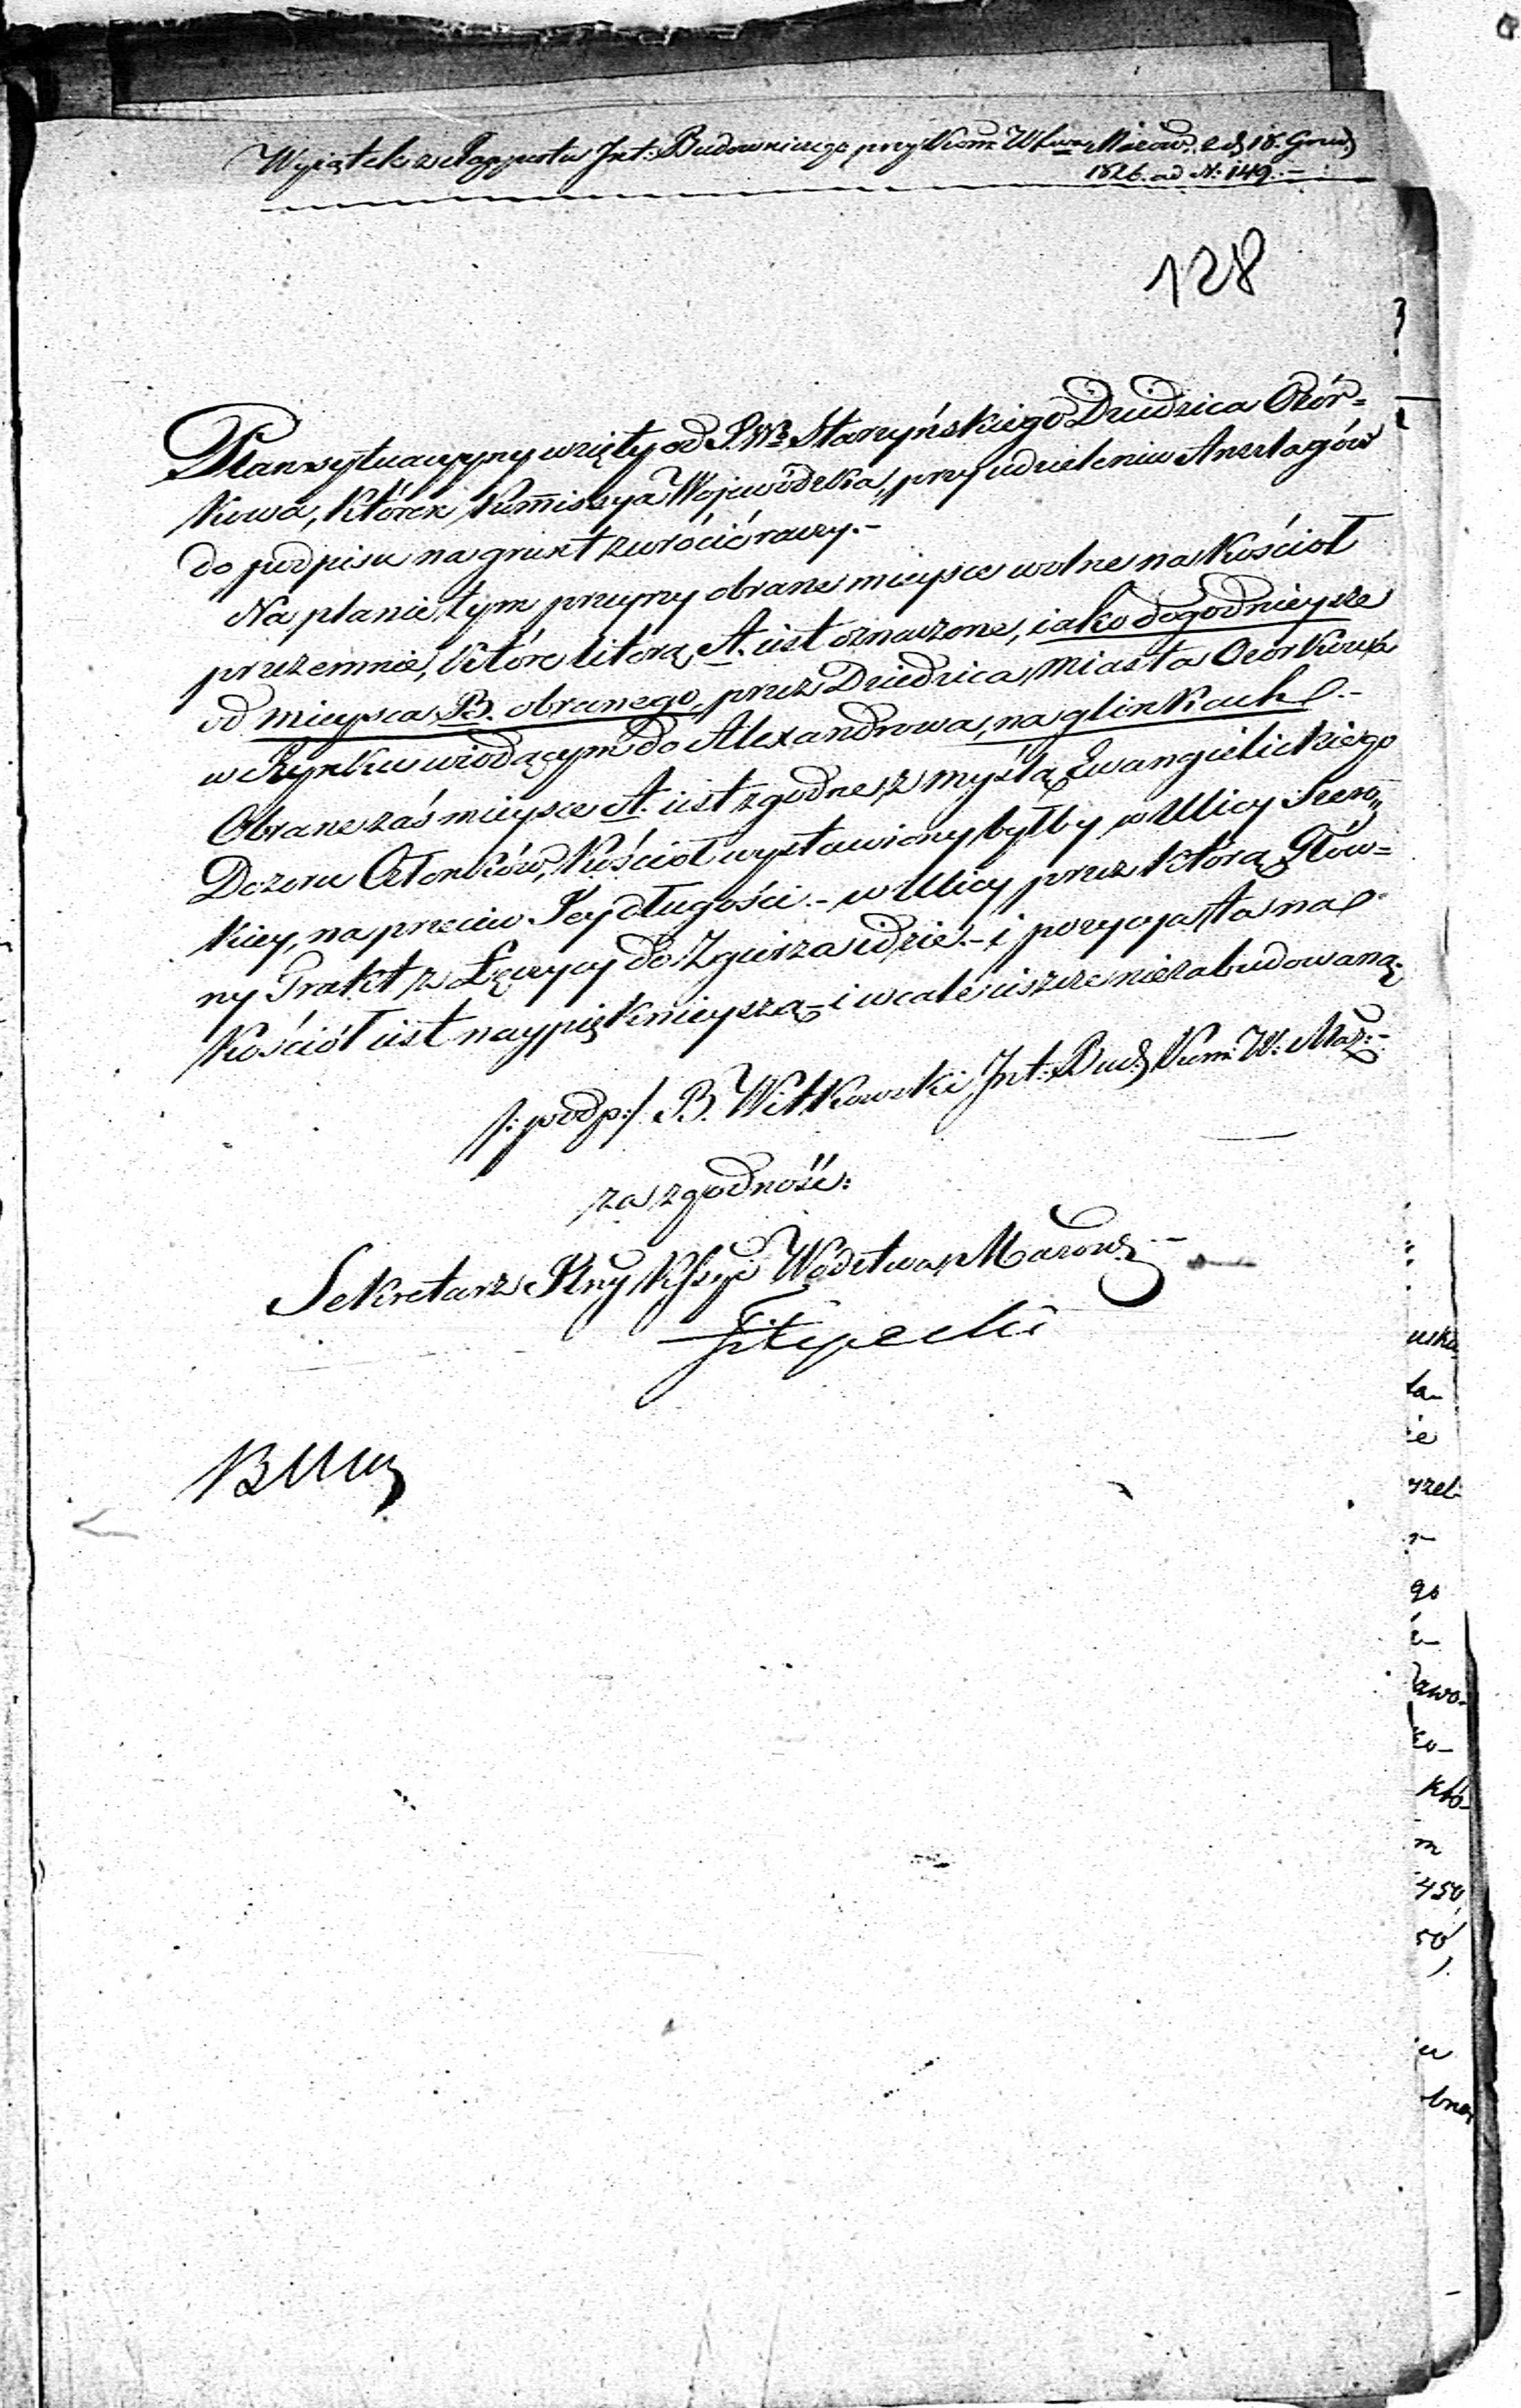 Wyiątek z Rapportu Int: Budowniczego przy Kom: W Mazow: z d 18. Grud
1826. ad N: 149.-
128
Plan sytuacyiny wzięty od J.W. Starzyńskiego Dziedzica Ozór=
kowa, któren Kommissya Wojewódzka, przy udzieleniu Anszlagów
do podpisu na grunt zwrócić raczy.-
Na planie tym przyny obrane mieysce wolne na Kościół
przezemnie, które literą A. iest oznaczone, iako dogodnieysze
od mieysca B. obranego przez Dziedzica miasta Ozorkowa
w Rynku wiodącym do Alexandrowa, na glinkach.-
Obrane zaś mieysce A. iest zgodne z myślą Ewangielickiego
Dozoru Członków, Kościół wystawiony byłby w Ulicy Szero„
kiey, na przeciw Jey długości.- w Ulicy przez którą Głów=
ny Trakt z Łęczycy do Zgierza idzie.- i pozycya ta na
Kościół iest naypięknieyszą- i wcale ieszcze niezabudowaną.
/: podp:/ B. Witkowski Int: Bud: Kom: W: Maz:-
za zgodność:
Sekretarz Jlny Kssyi Wodztwa Mazow:
Filipecki
uska
ła-
ie
rzeb
go
ko-
któ-
m
450
50
u
bne